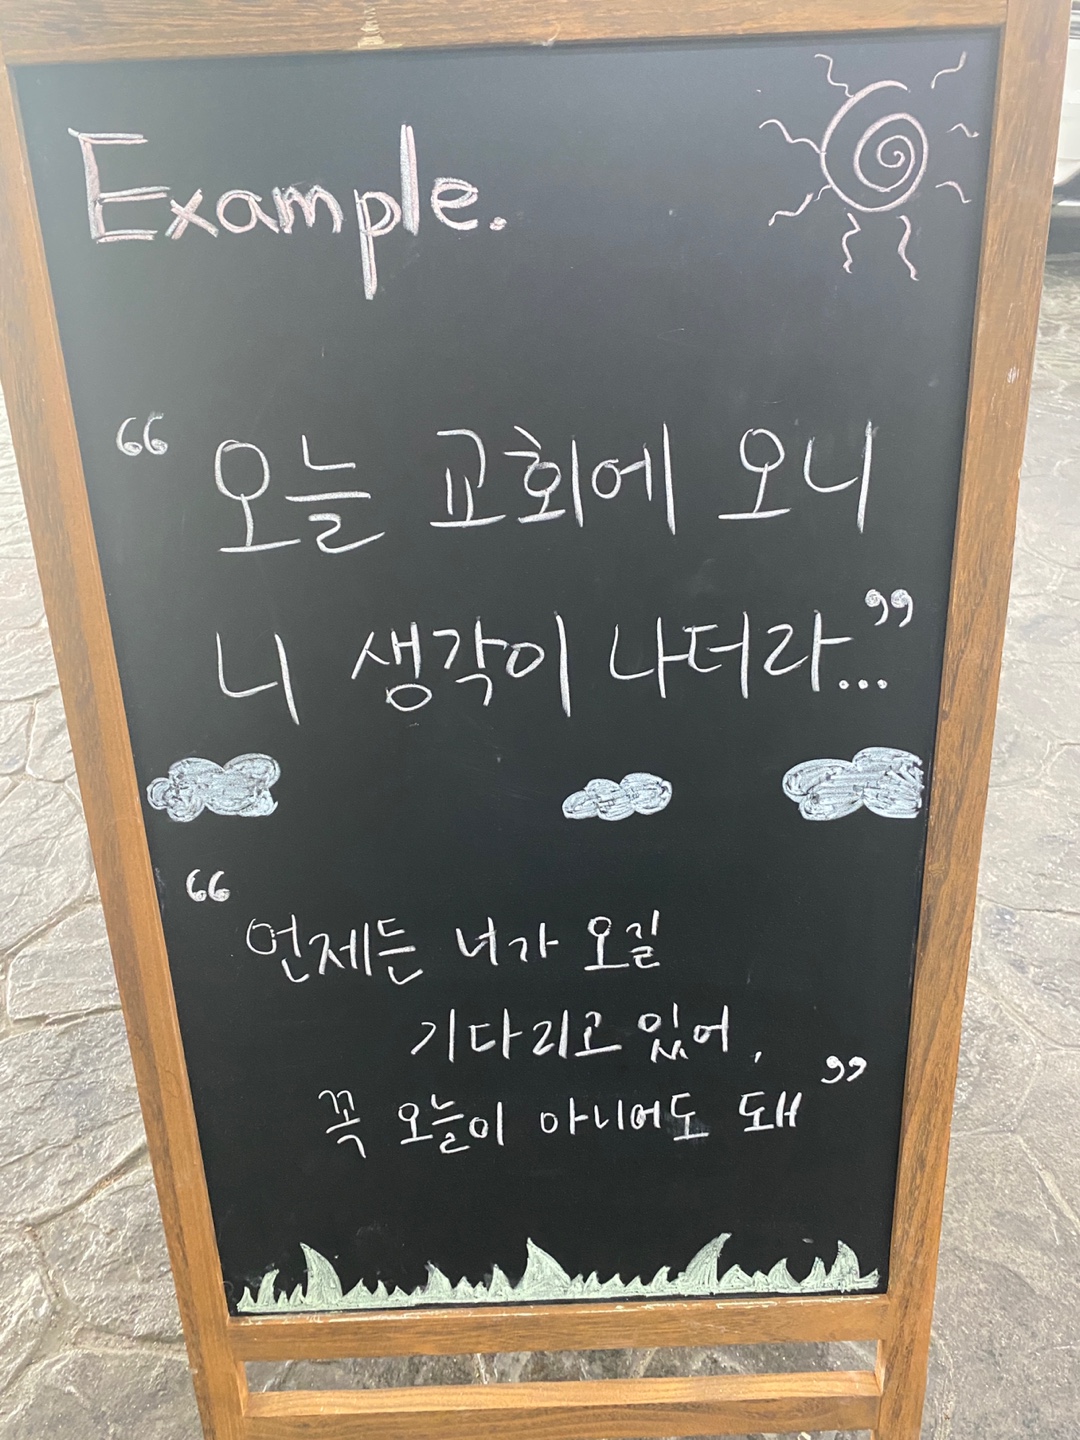 Example.
“ 오늘 교회에 오니
니 생각이 나더라... ”
“ 언제든 너가 오길
기다리고 있어,
꼭 오늘이 아니어도 돼 ”